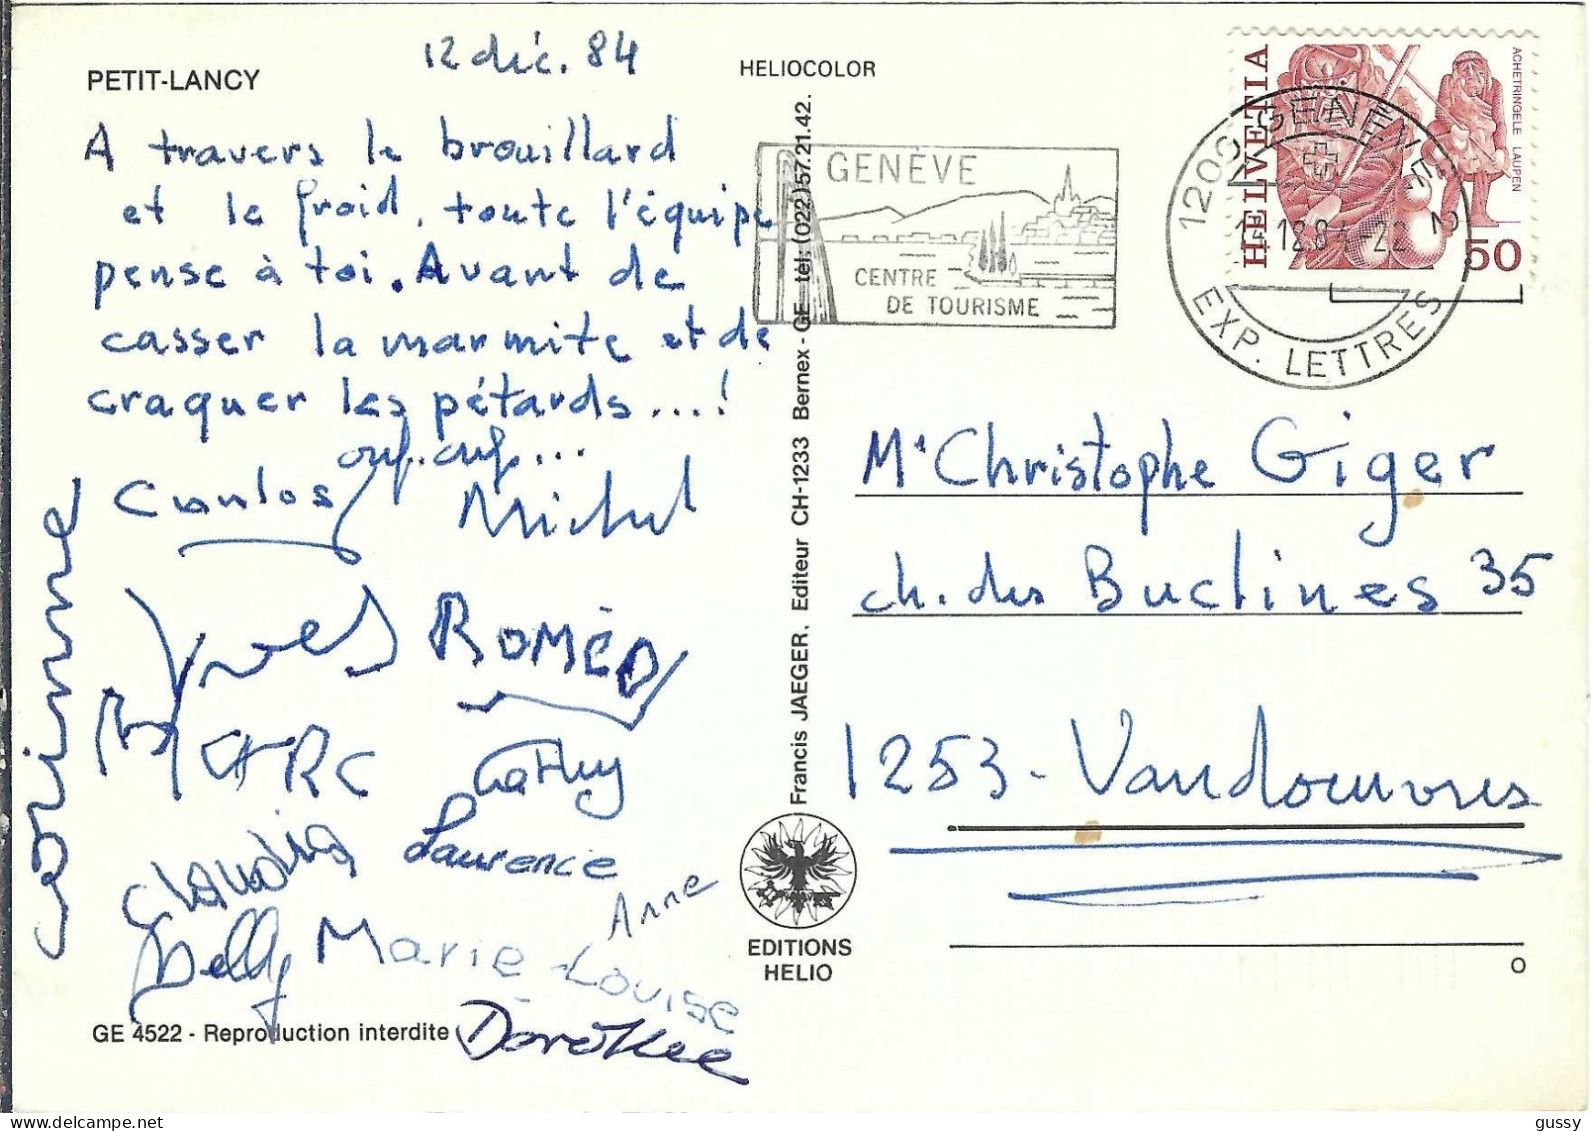 12 déc. 84
PETIT-LANCY
A travers le brouillard
et le froid, toute l'équipe
pense à toi. Avant de
casser la marmite et de
craquer les pétards...!
ouf..ouf...
Carlos
Michel
corinne
Yves
ROMÉO
MARC
Cathy
Claudia
Laurence
Anne
Delly
Marie-Louise
Dorothee
GE 4522 - Reproduction interdite
HELIOCOLOR
Francis JAEGER. Editeur CH-1233 Bernex - GE tel. (022) 57.21.42.
EDITIONS
HELIO
GENÈVE
CENTRE
DE TOURISME
1200 GENÈVE
EXP. LETTRES
HELVETIA
ACHETRINGELE LAUPEN
50
Mr Christophe Giger
ch. des Buclines 35
1253 - Vandoeuvres
O
gussy